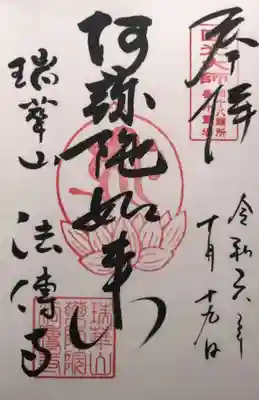 奉拝
令和六年
十月十九日
阿弥陀如来
瑞華山 法傳寺
瑞華山